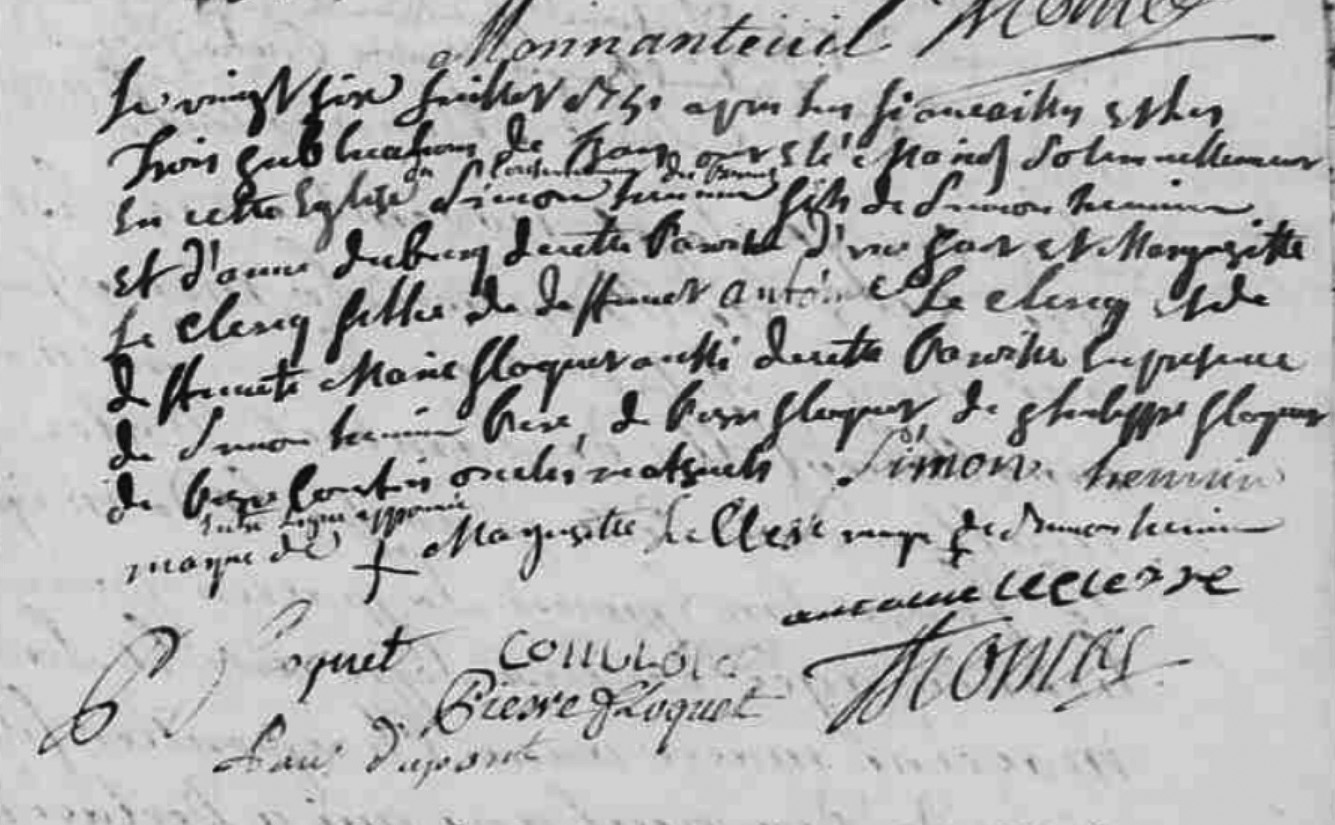 Monnanteuil Thomas
le vingt six juillet 1741 apres les fiancailles et les
trois publications de bans ont été mariés solemnellement
du consentement des parents
en cette Eglise Simon hennin fils de Simon hennin
et d'anne dubucq de cette Paroisse d'une part et Marguerite
le clercq fille de deffunct antoine Le clercq et de
deffuncte Marie floquet aussi de cette Paroisse en presence
de Simon hennin Pere, de Pierre floquet, de philippe floquet
de Pierre oncles maternels Simon hennin
entre ligne
marque de + Marguerite le Clere marque de Simon hennin
antoine leclerre
floquet Thomas
Pierre floquet
dupont